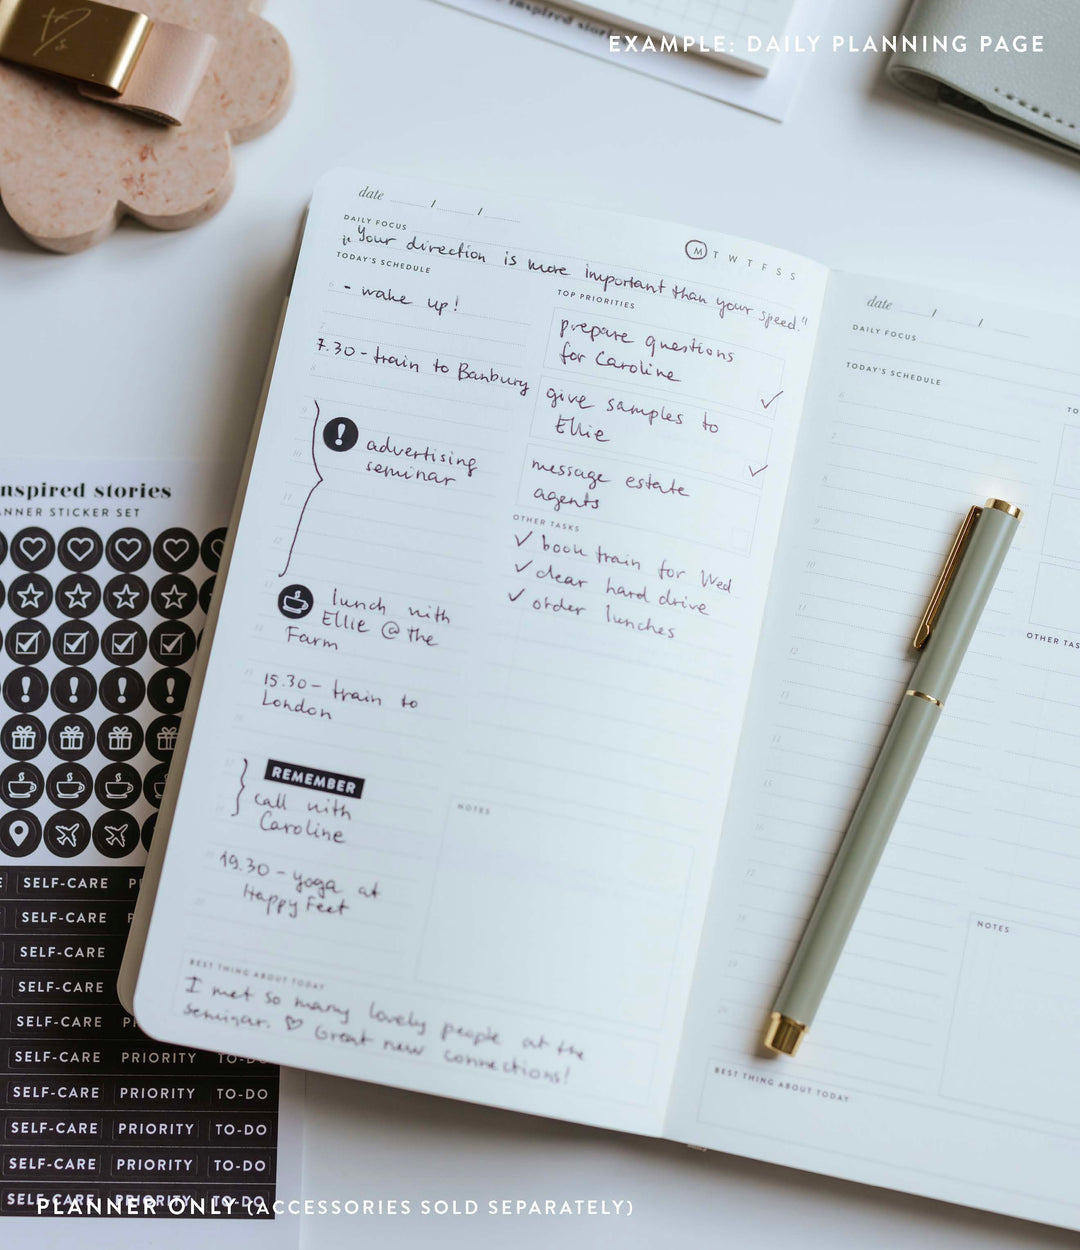 EXAMPLE: DAILY PLANNING PAGE
inspired
date / /
M T W T F S S
DAILY FOCUS
"Your direction is more important than your speed."
TODAY'S SCHEDULE
- wake up!
7
7.30 - train to Banbury
8
9
10
advertising
seminar
11
12
lunch with
Ellie @ the
Farm
15.30 - train to
London
REMEMBER
call with
Caroline
19.30 - yoga at
Happy Feet
TOP PRIORITIES
prepare questions
for Caroline
give samples to
Ellie
message estate
agents
OTHER TASKS
✓ book train for Wed
✓ clear hard drive
✓ order lunches
NOTES
BEST THING ABOUT TODAY
I met so many lovely people at the
seminar. ♡ Great new connections!
date / /
DAILY FOCUS
TODAY'S SCHEDULE
6
7
8
9
10
11
12
13
14
15
16
17
18
19
20
TO
OTHER TAS
NOTES
BEST THING ABOUT TODAY
nspired stories
ANNER STICKER SET
SELF-CARE P
SELF-CARE
SELF-CARE
SELF-CARE
SELF-CARE P
SELF-CARE PRIORITY TO-DO
SELF-CARE PRIORITY TO-DO
SELF-CARE PRIORITY TO-DO
SELF-CARE PRIORITY TO-DO
SELF-CARE PRIORITY TO-DO
PLANNER ONLY (ACCESSORIES SOLD SEPARATELY)